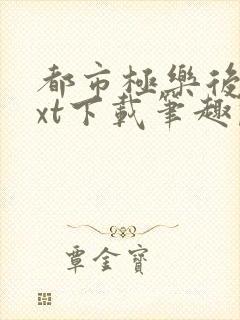 都市極樂後
xt下載筆趣
覃金寶